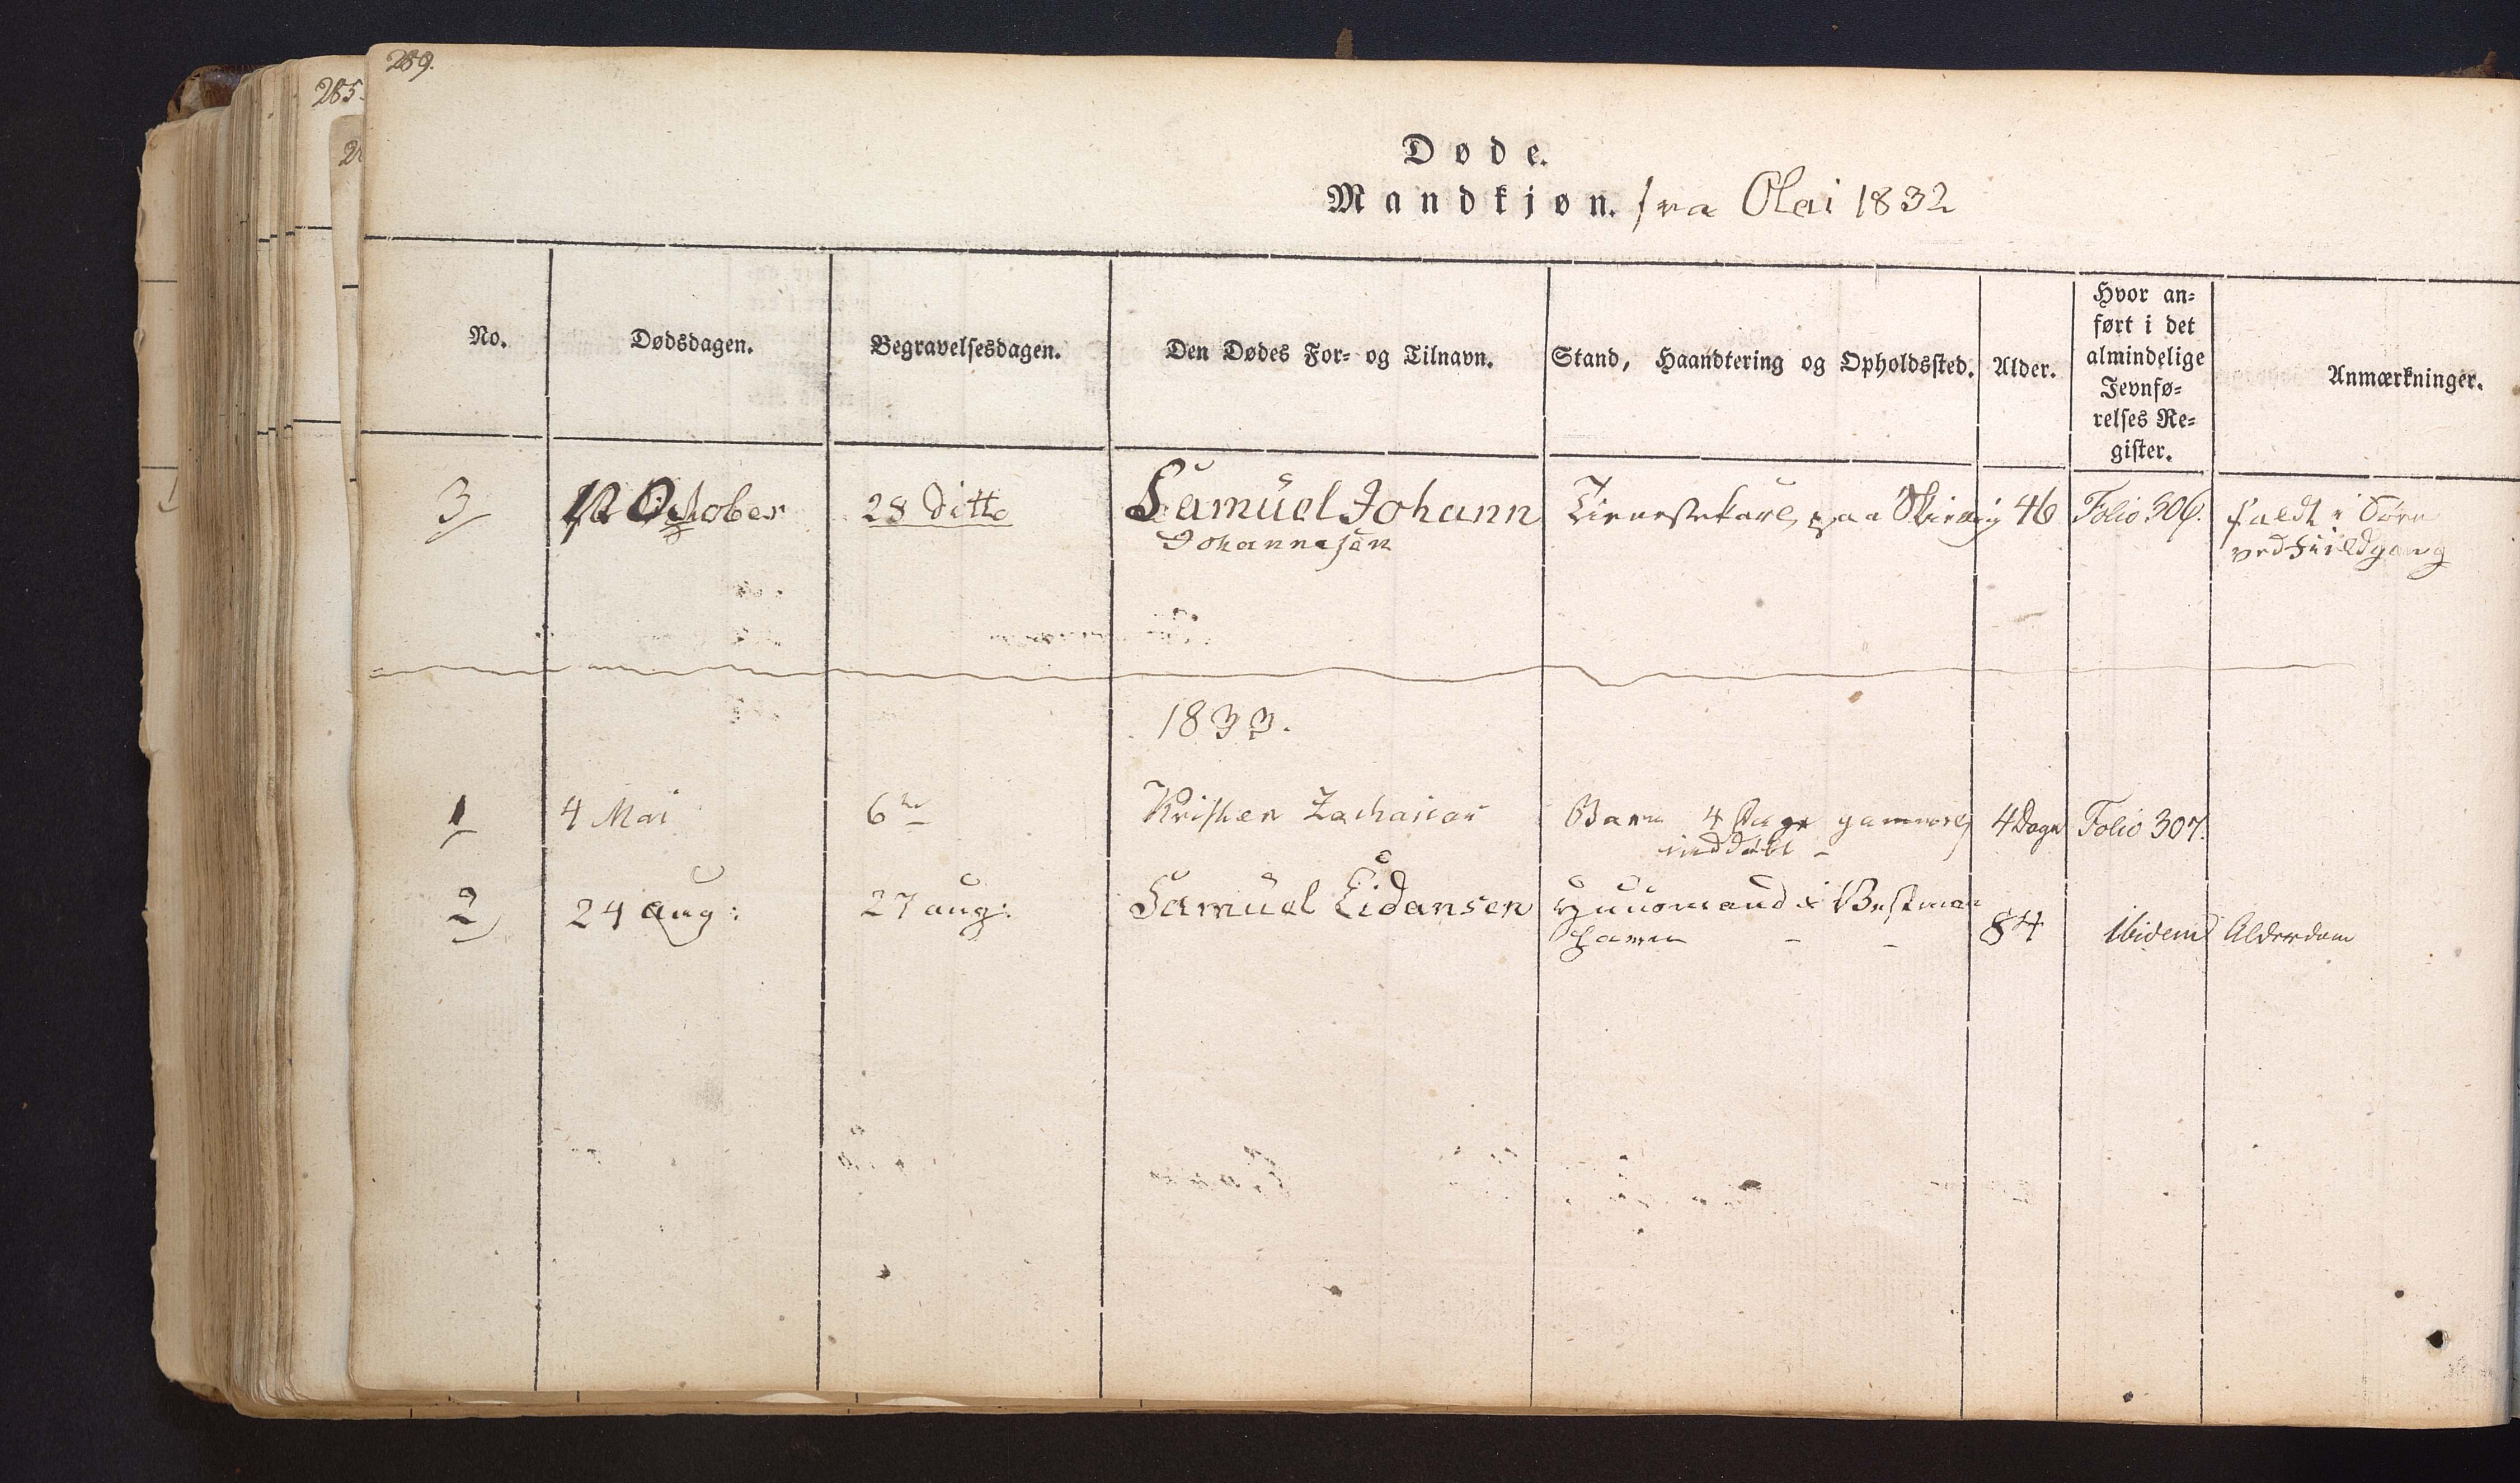 289.
285.
Døde.
Mandkjøn. fra Olai 1832
No. Dødsdagen. Begravelsesdagen. Den Dødes For- og Tilnavn. Stand, Haandtering og Opholdssted. Alder. Hvor an-
ført i det
almindelige
Jevnfø-
relses Re-
gister. Anmærkninger.
3 October 28 ditto Samüel Johann Tienestekarl paa 46 Folio 306. faldt i Søen
Johannesen ved
1833.
1 4 Mai 6te Kristen Zacharias Barn 4 Dage gammel 4 Dage Folio 307.
2 24 aug: 27 aug: Samüel Eidansen Huusmand i Bestman
havn - - 84 Ibidem Alderdom